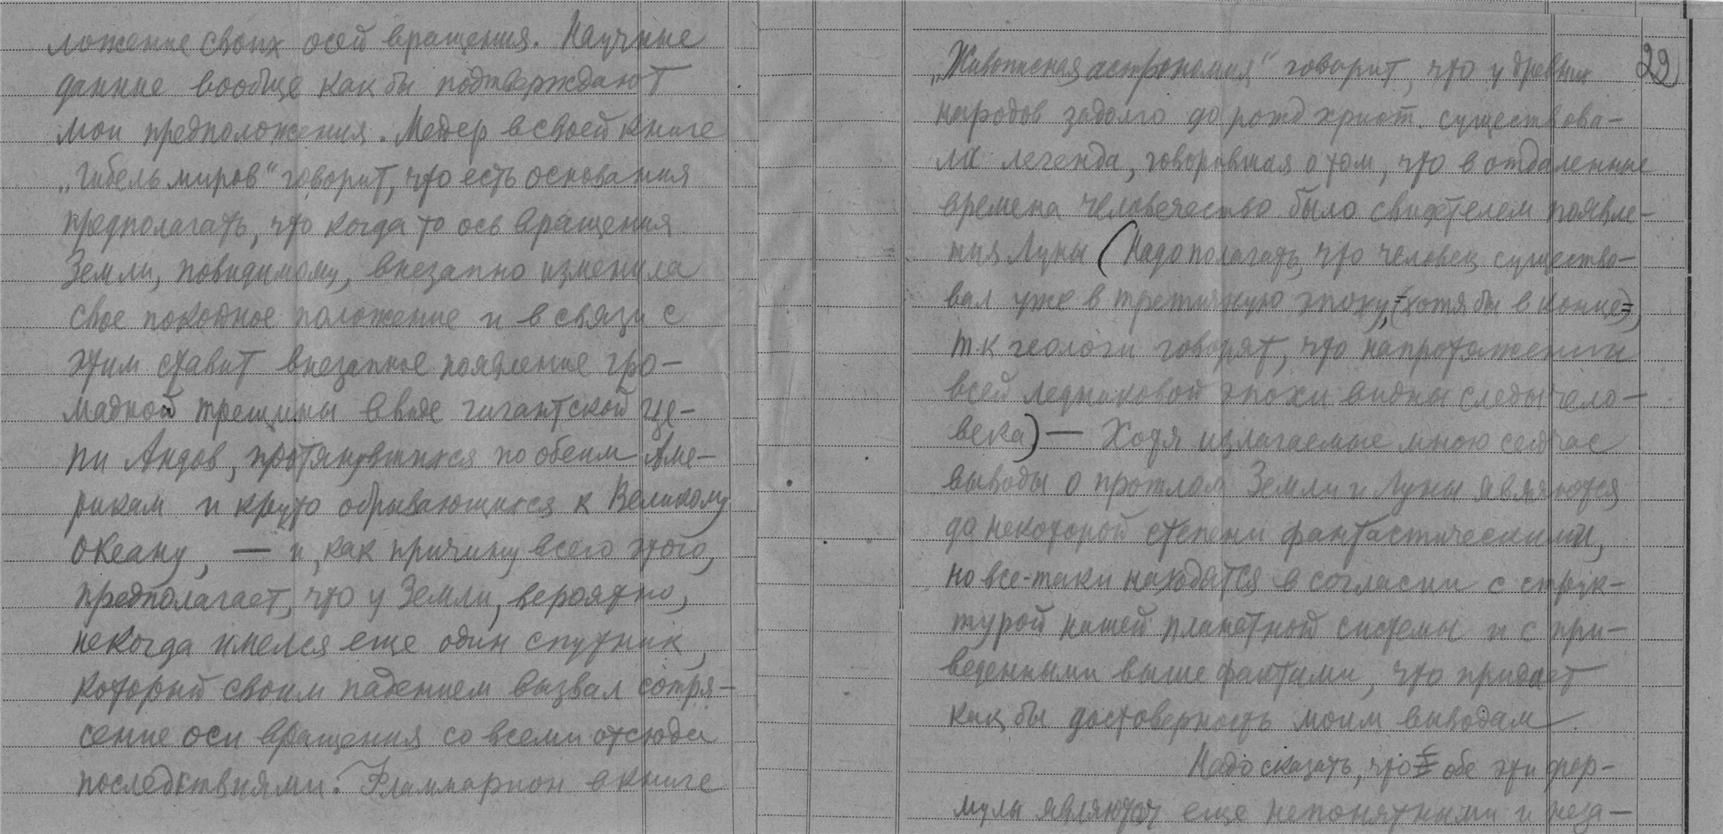 ложение своих осей вращения. Научные
данные вообще как бы подтверждают
мои предположения. Мейер в своей книге
„Гибель миров“ говорит, что есть основания
предполагать, что когда то ось вращения
Земли, повидимому, внезапно изменила
свое покойное положение и в связи с
этим ставит внезапное появление гро-
мадной трещины в виде гигантской це-
пи Андов, протянувшихся по обеим Аме-
рикам и круто обрывающихся к Великому
океану, — и, как причину всего этого,
предполагает, что у Земли, вероятно,
некогда имелся еще один спутник,
который своим падением вызвал сотря-
сение оси вращения со всеми отсюда
последствиями. Фламмарион в книге
22
„Живописная астрономия“ говорит, что у древних
народов задолго до рожд христ. существова-
ла легенда, говорившая о том, что в отдаленные
времена человечество было свидетелем появле-
ния Луны (Надо полагать, что человек существо-
вал уже в третичную эпоху, (хотя бы в конце),
т-к геологи говорят, что на протяжении
всей ледниковой эпохи видны следы чело-
века) — Хотя излагаемые мною сейчас
выводы о прошлом Земли и Луны являются
до некоторой степени фантастическими,
но все-таки находятся в согласии с струк-
турой нашей планетной системы и с при-
веденными выше фактами, что придает
как бы достоверность моим выводам
Надо сказать, что обе эти фор-
мулы являются еще непонятными и неза-